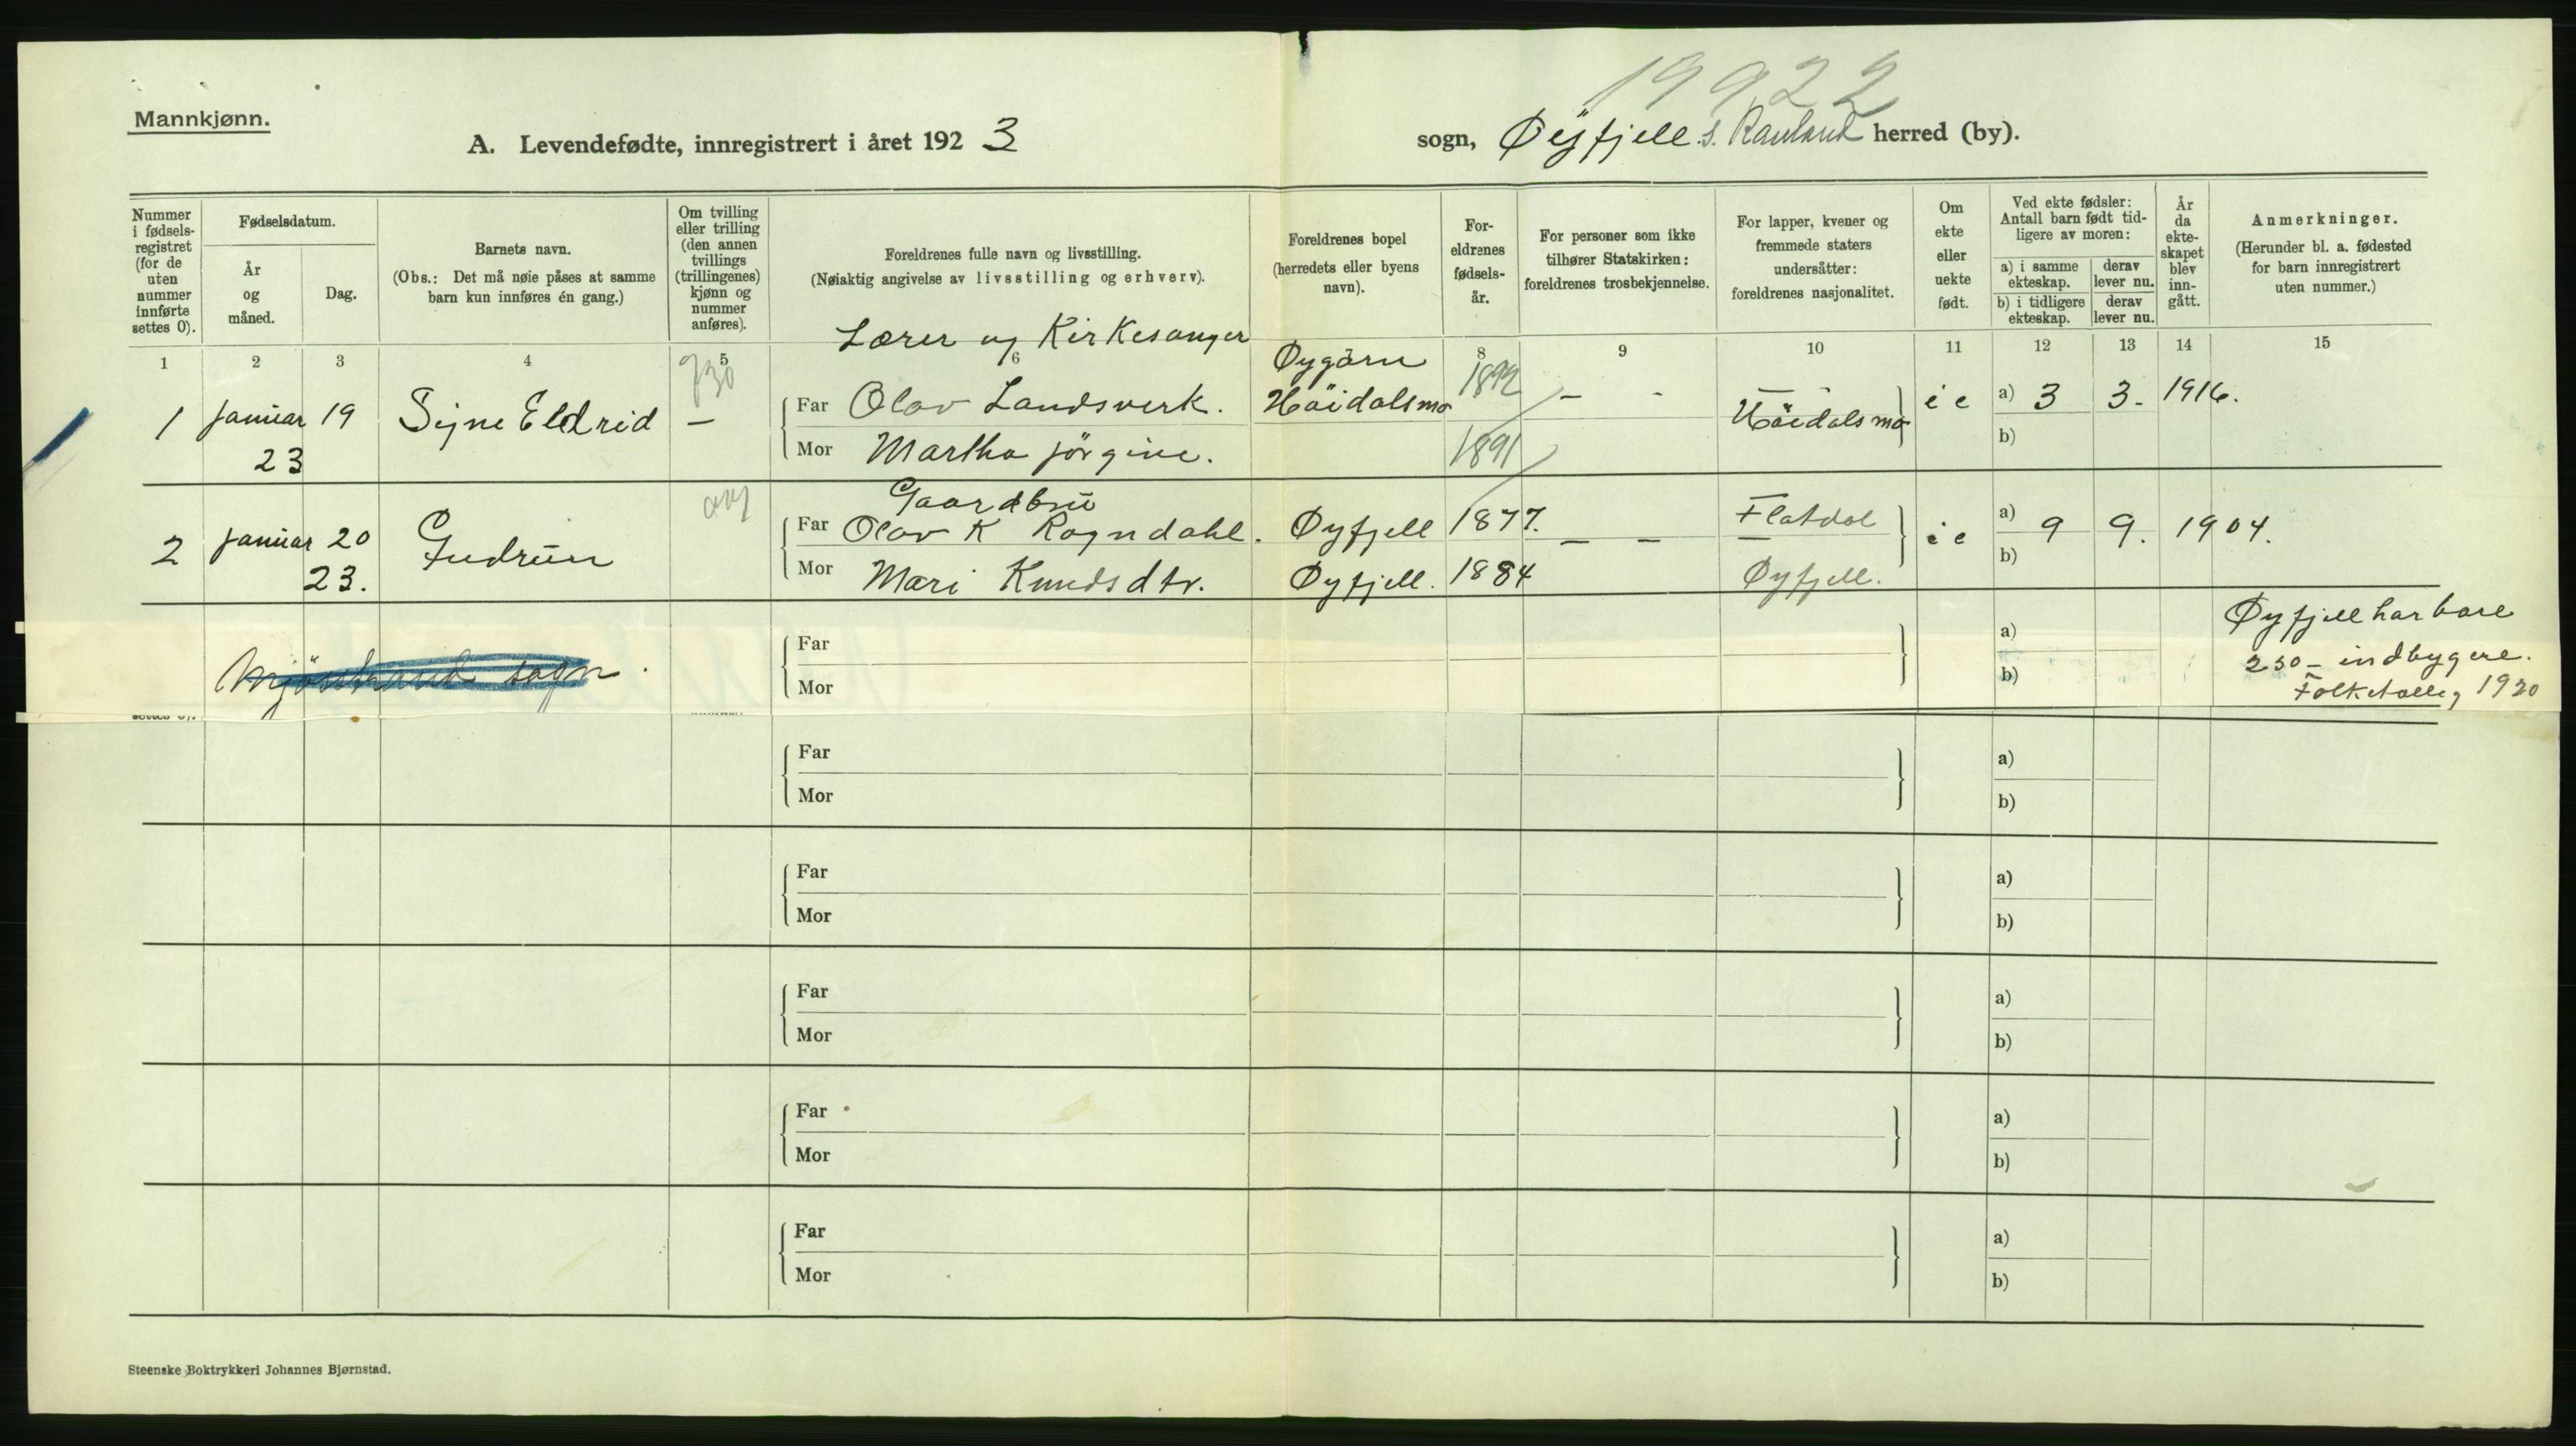 1922
Mannkjønn.
A. Levendefødte, innregistrert i året 1923
sogn, Øyfjell s. Rauland herred (by).
Nummer i fødsels-registret (for de uten nummer innførte settes 0).
Fødselsdatum.
År og måned.
Dag.
Barnets navn.
(Obs.: Det må nøie påses at samme barn kun innføres én gang.)
Om tvilling eller trilling (den annen tvillings (trillingenes) kjønn og nummer anføres).
Foreldrenes fulle navn og livsstilling.
(Nøiaktig angivelse av livsstilling og erhverv).
Foreldrenes bopel (herredets eller byens navn).
For-eldrenes fødsels-år.
For personer som ikke tilhører Statskirken: foreldrenes trosbekjennelse.
For lapper, kvener og fremmede staters undersåtter: foreldrenes nasjonalitet.
Om ekte eller uekte født.
Ved ekte fødsler: Antall barn født tid-ligere av moren:
a) i samme ekteskap.
derav lever nu.
b) i tidligere ekteskap.
derav lever nu.
År da ekte-skapet blev inn-gått.
Anmerkninger.
(Herunder bl. a. fødested for barn innregistrert uten nummer.)
1 2 3 4 5 6 8 9 10 11 12 13 14 15
Lærer og Kirkesanger
930
Øygarn
1 januar 19 Signe Eldrid — Far Olav Landsverk. Høidalsmo 1892 — - Høidalsmo i e a) 3 3. 1916.
23 Mor Martha Jörgine. 1891 b)
Gaardbru
2 januar 20 Gudrun Far Olav K Rogndahl. Øyfjell 1877. — — Flatdal i e a) 9 9. 1904.
23. Mor Mari Knudsdtr. Øyfjell. 1884 Øyfjell. b)
Øyfjell har bare
Far a) 250 - indbygere.
Mjøsstrand sogn. Mor b) Folketællg 1920
Far a)
Mor b)
Far a)
Mor b)
Far a)
Mor b)
Far a)
Mor b)
Far a)
Mor b)
Steenske Boktrykkeri Johannes Bjørnstad.